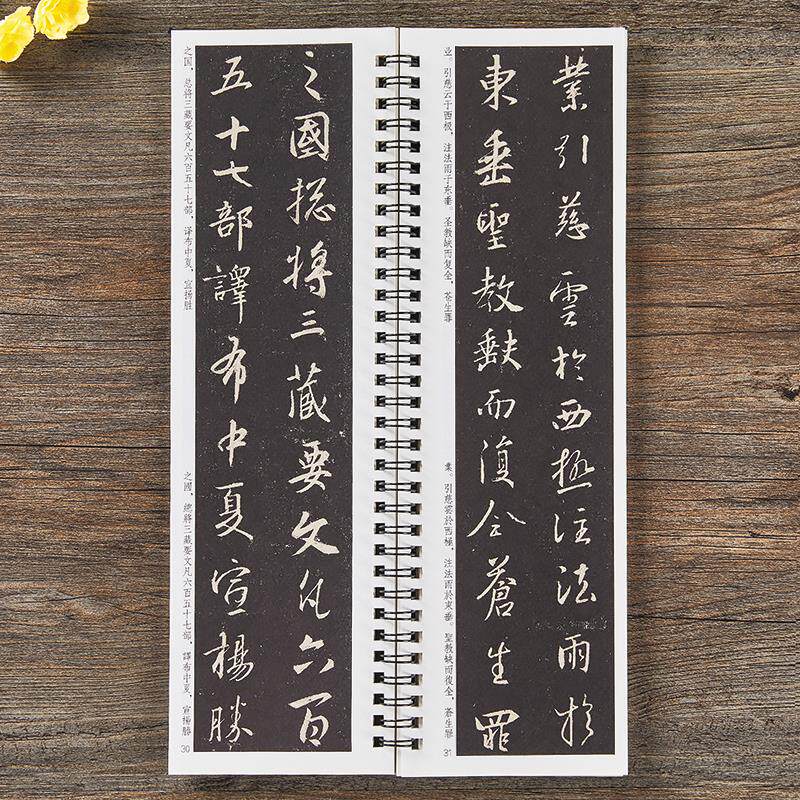 之國揔將三藏要文凡六百
五十七部譯布中夏宣揚勝
之国，总将三藏要文凡六百五十七部，译布中夏，宣扬胜
之國，總將三藏要文凡六百五十七部，譯布中夏，宣揚勝
30
業引慈雲於西極注法雨於
東垂聖教缺而復全蒼生罪
业。引慈云于西极，注法雨于东垂。圣教缺而复全，苍生罪
業。引慈雲於西極，注法雨於東垂。聖教缺而復全，蒼生罪
31